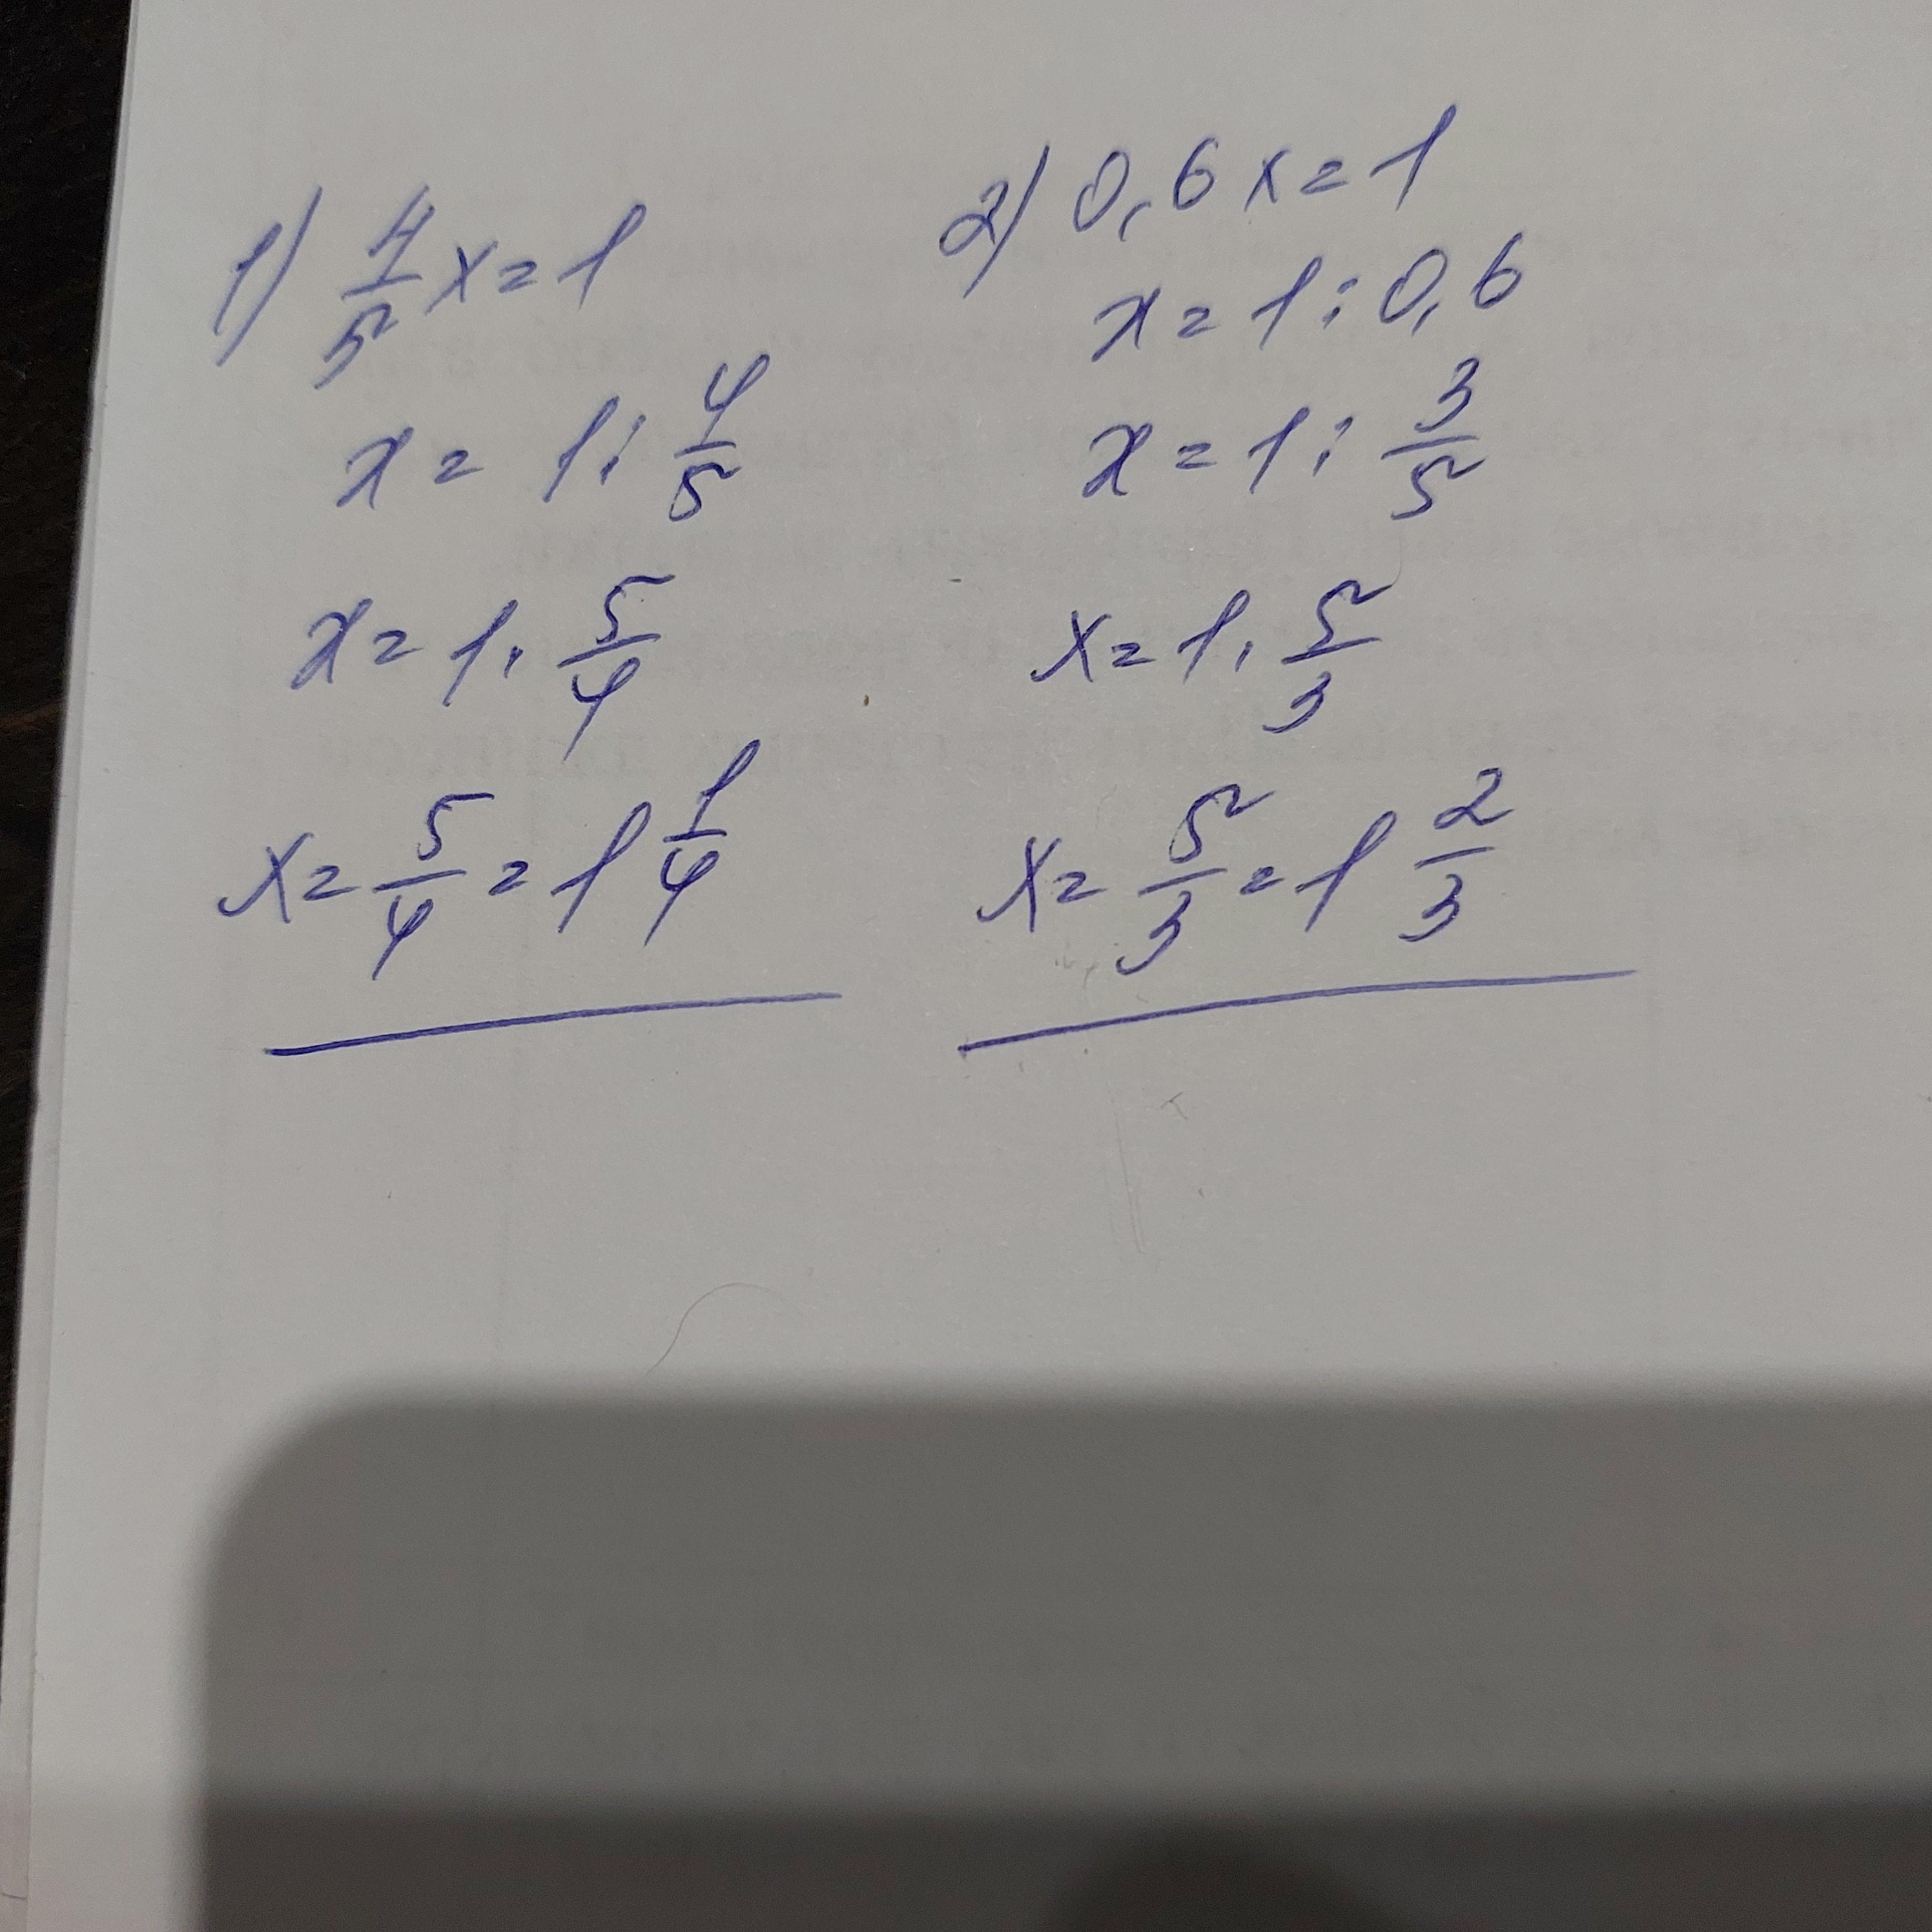 1) 4/5 x = 1
x = 1 : 4/5
x = 1 · 5/4
x = 5/4 = 1 1/4
2) 0,6 x = 1
x = 1 : 0,6
x = 1 : 3/5
x = 1 · 5/3
x = 5/3 = 1 2/3